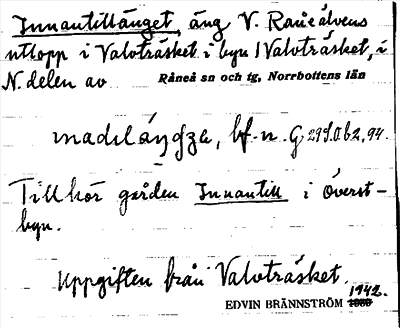 Innantillänget, äng V. Råneälvens
utlopp i Valvträsket i byn Valvträsket, i
N. delen av Råneå sn och tg, Norrbottens län
bf. n. G
Tillhör gården Innantill i överst-
byn.
Uppgiften från Valvträsket.
1942.
EDVIN BRÄNNSTRÖM